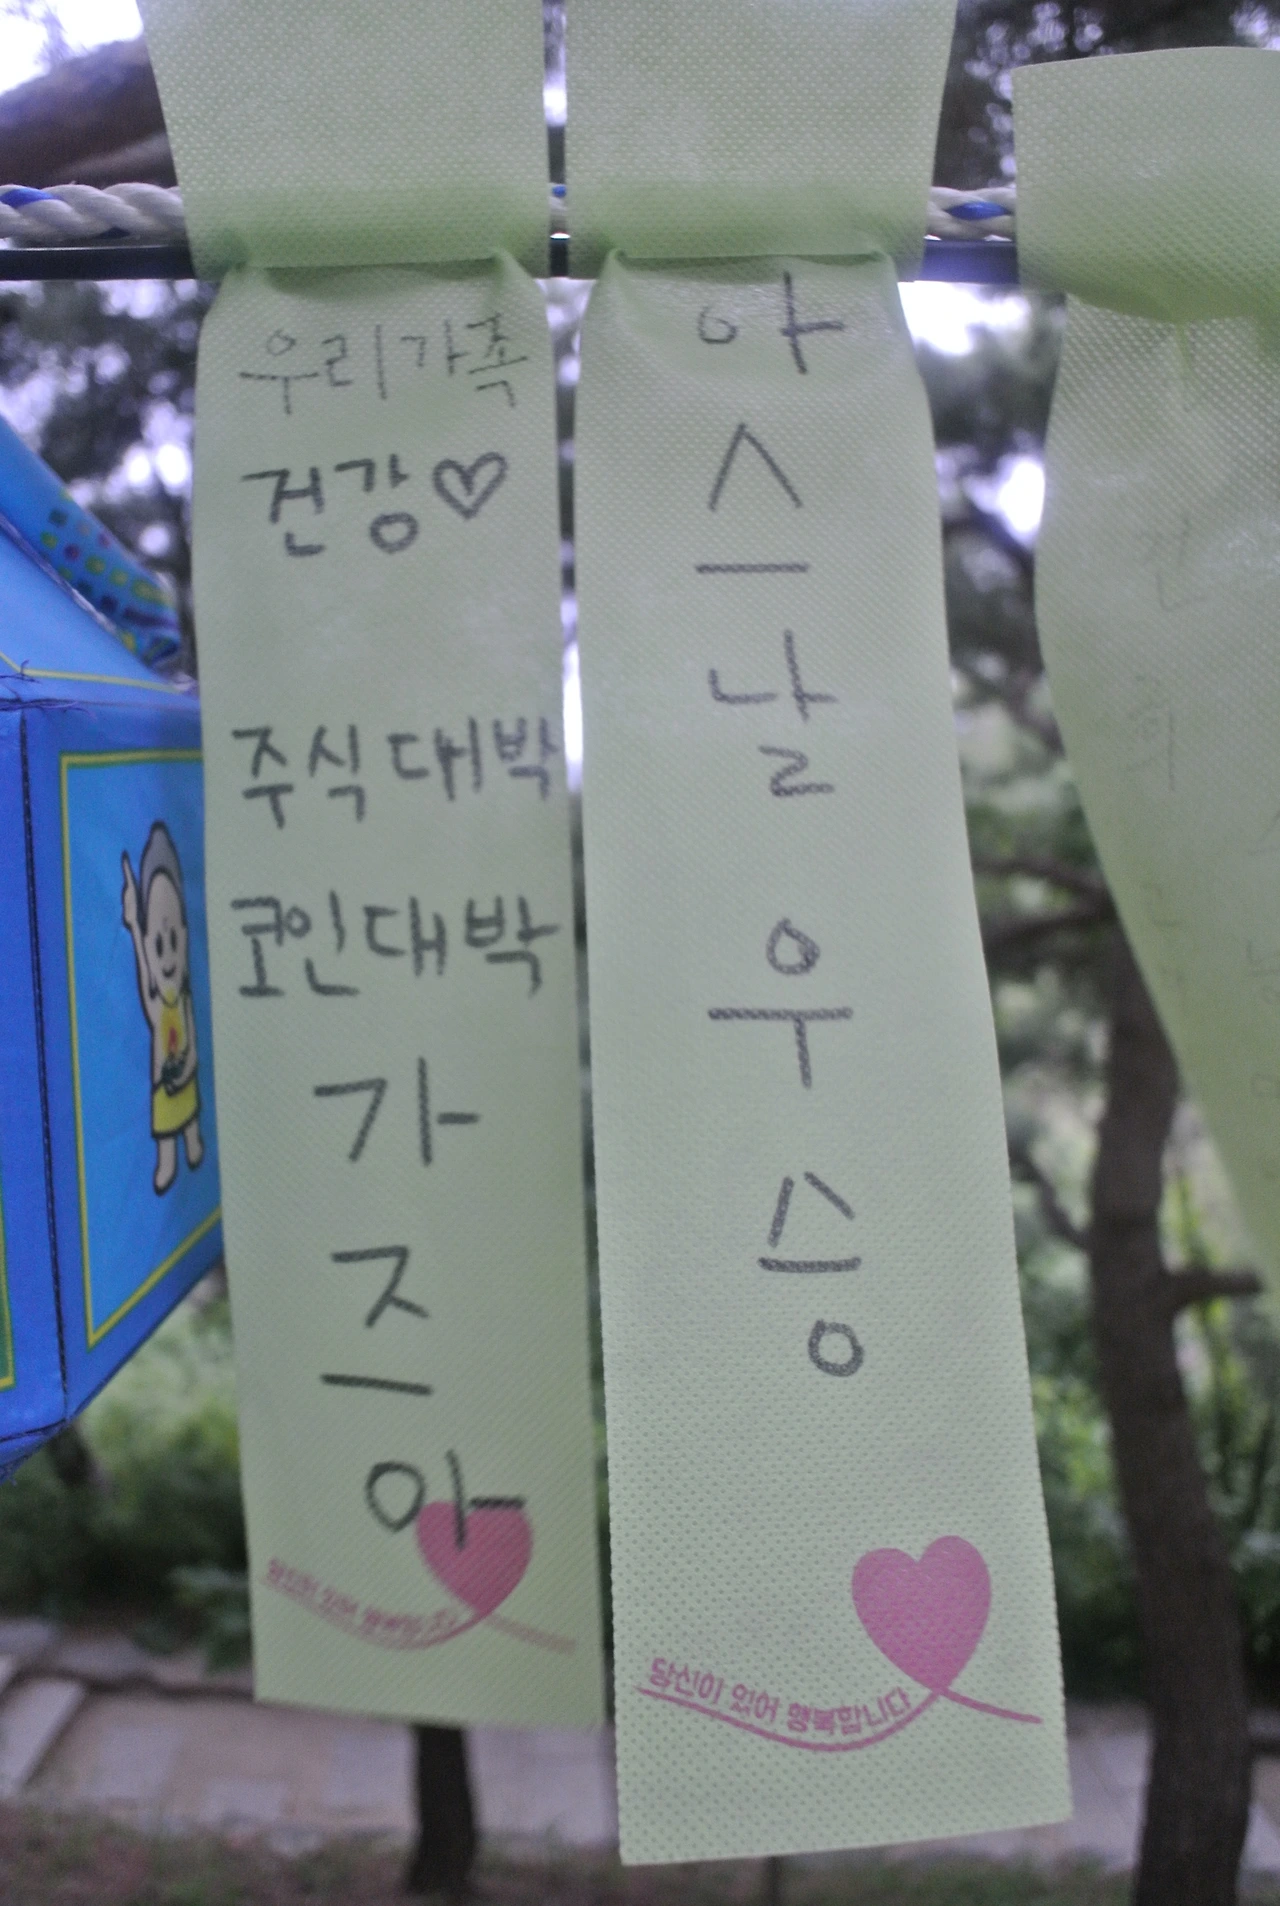 우리가족
건강♡
주식대박
코인대박
가
즈
아
당신이 있어 행복합니다
아
스
날
우
승
당신이 있어 행복합니다